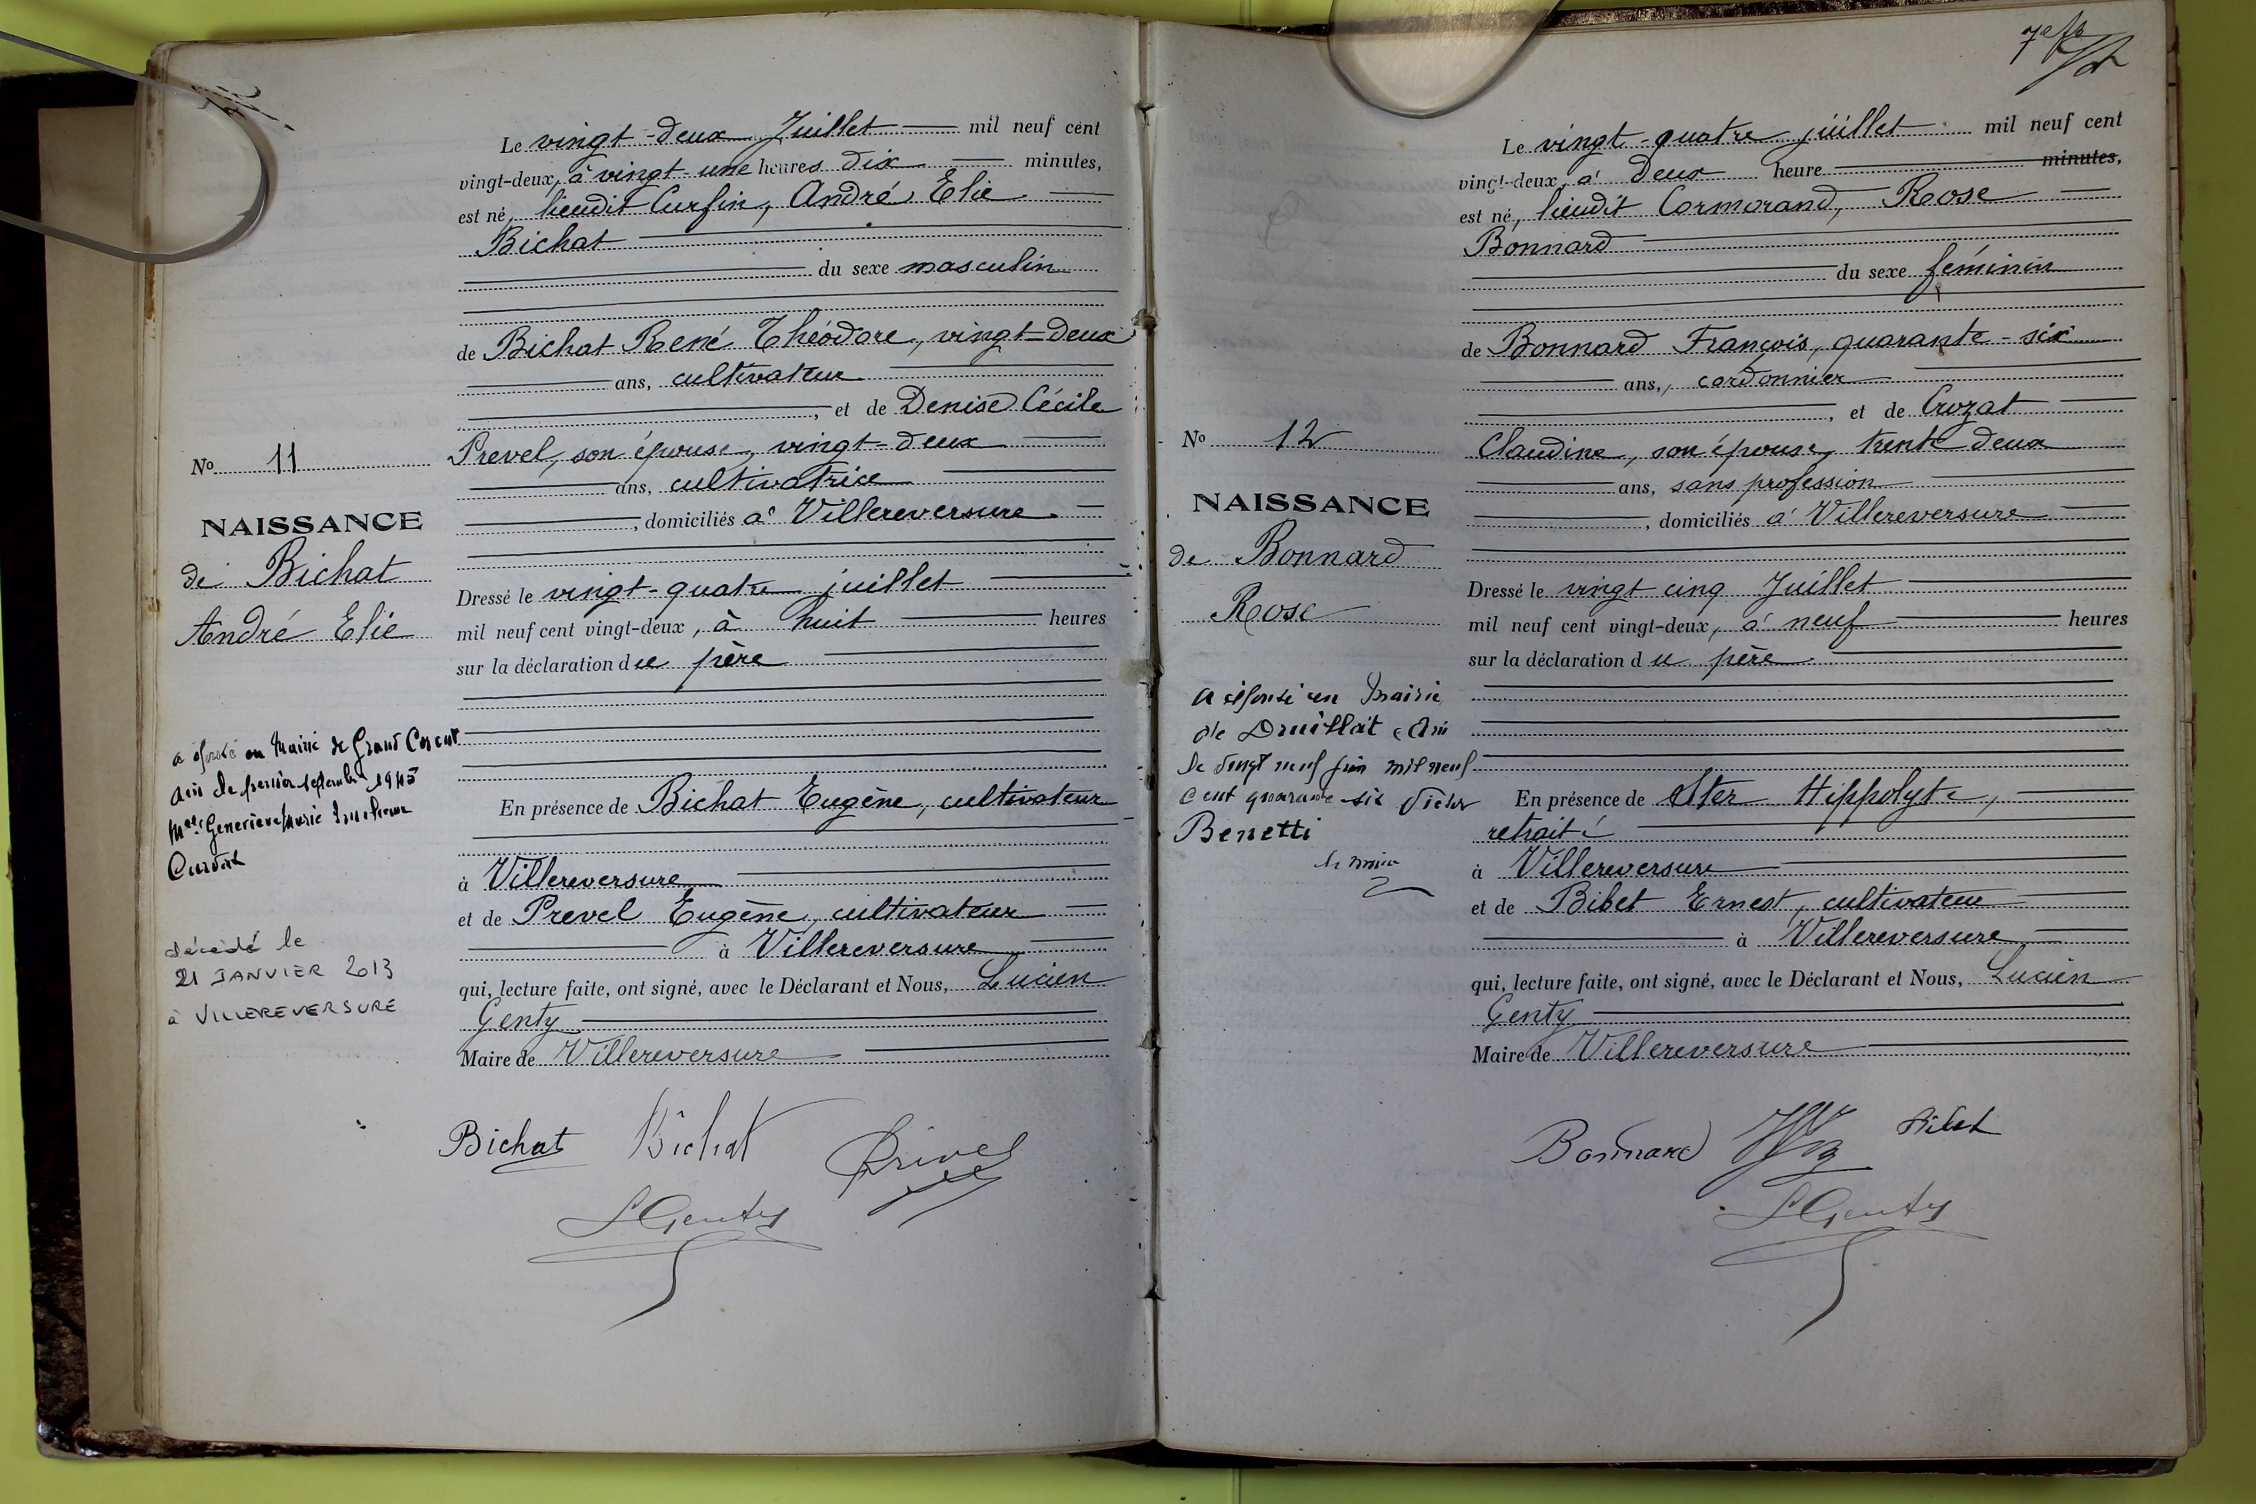 Le vingt-deux Juillet mil neuf cent
vingt-deux, à vingt-une heures dix minutes,
est né, lieudit Curfin, André Elie
Bichat
du sexe masculin
de Bichat René Théodore, vingt-deux
ans, cultivateur
, et de Denise Cécile
Prevel, son épouse, vingt-deux
ans, cultivatrice
, domiciliés à Villereversure
Dressé le vingt-quatre juillet
mil neuf cent vingt-deux, à huit heures
sur la déclaration du père
En présence de Bichat Eugène, cultivateur
à Villereversure
et de Prevel Eugène, cultivateur
à Villereversure
qui, lecture faite, ont signé, avec le Déclarant et Nous, Lucien
Genty
Maire de Villereversure
Bichat Bichat
LGenty
No 11
NAISSANCE
de Bichat
André Elie
a épousé en Mairie de Grand Corent
Ain le premier septembre 1945
Geneviève Marie
décédé le
21 JANVIER 2013
à VILLEREVERSURE
Le vingt-quatre juillet mil neuf cent
vingt-deux, à deux heure minutes,
est né, lieudit Cormorand, Rose
Bonnard
du sexe féminin
de Bonnard François, quarante-six
ans, cordonnier
, et de Crozat
Claudine, son épouse, trente deux
ans, sans profession
, domiciliés à Villereversure
Dressé le vingt cinq Juillet
mil neuf cent vingt-deux, à neuf heures
sur la déclaration du père
En présence de Ster Hippolyte,
retraité
à Villereversure
et de Bibet Ernest, cultivateur
à Villereversure
qui, lecture faite, ont signé, avec le Déclarant et Nous, Lucien
Genty
Maire de Villereversure
Bonnard Bibet
LGenty
No 12
NAISSANCE
de Bonnard
Rose
a épousé en Mairie
de Druillat Ain
le vingt neuf juin mil neuf
cent quarante-six Victor
Benetti
le maire